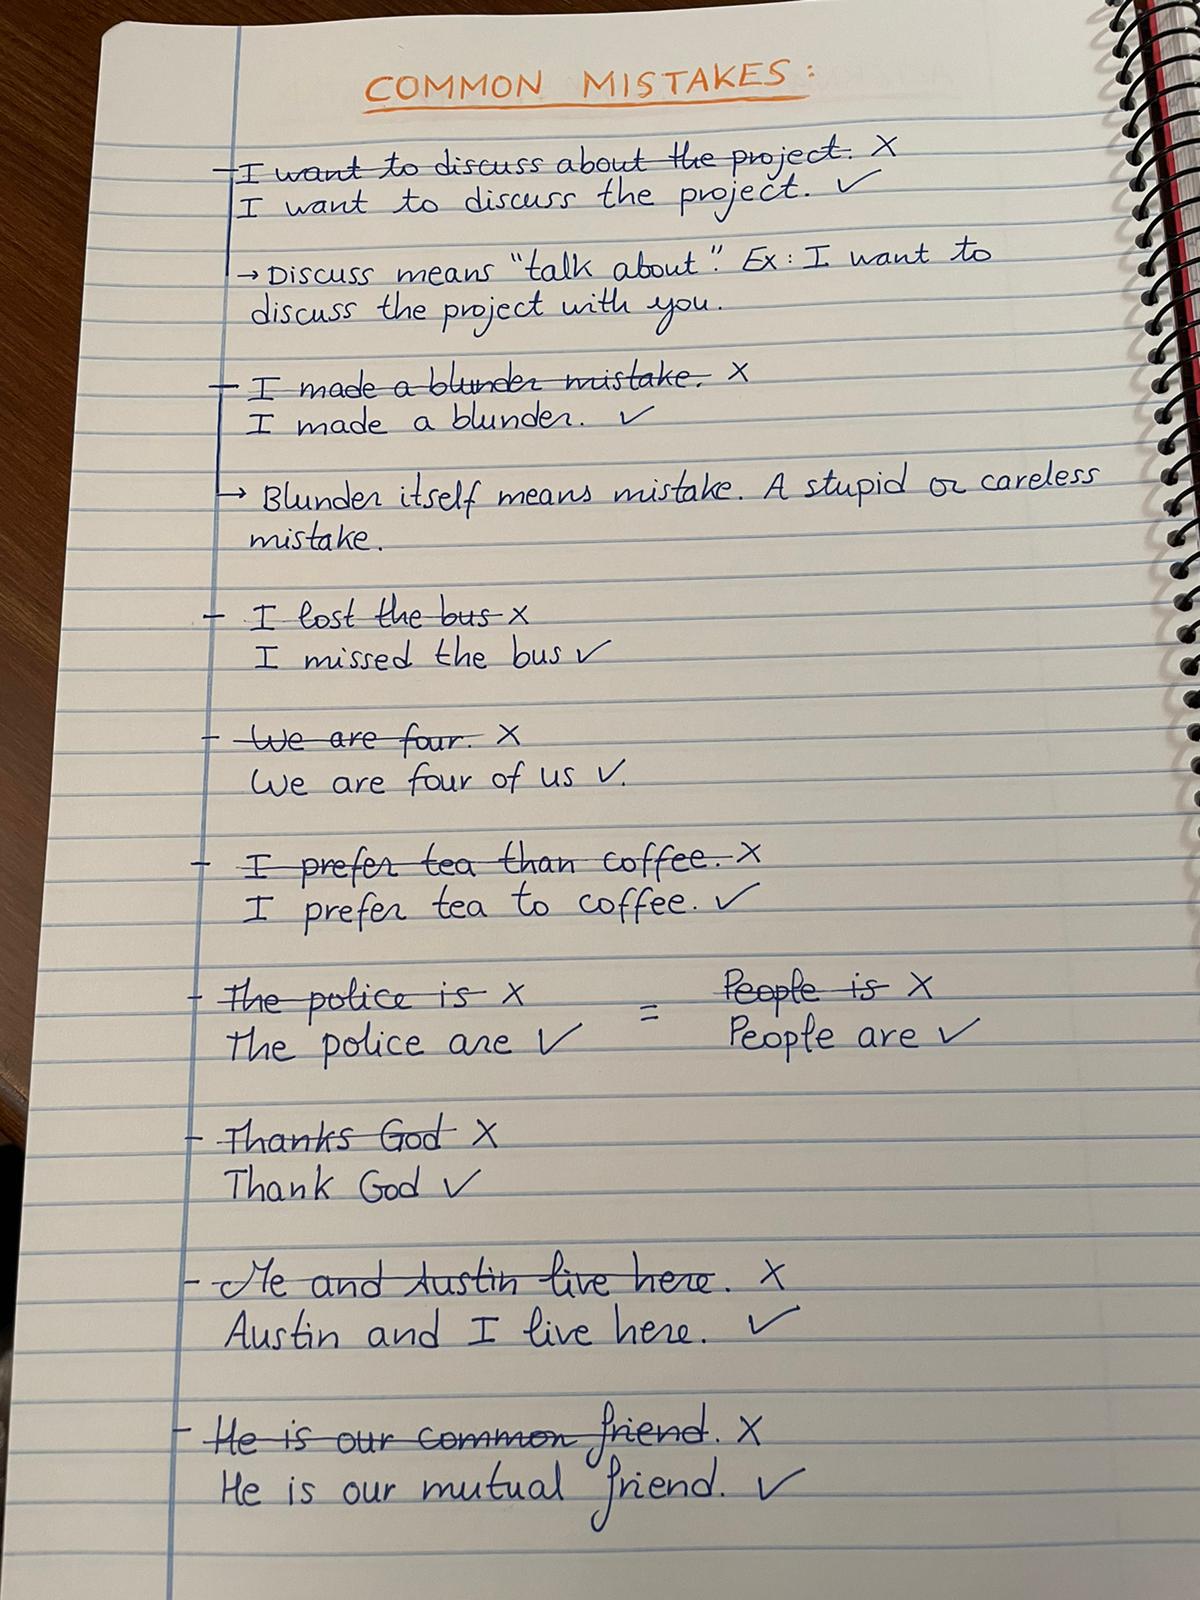 COMMON MISTAKES:
- I want to discuss about the project. X
I want to discuss the project. ✓
→ Discuss means "talk about". Ex: I want to
discuss the project with you.
- I made a blunder mistake. X
I made a blunder. ✓
→ Blunder itself means mistake. A stupid or careless
mistake.
- I lost the bus X
I missed the bus ✓
- We are four. X
We are four of us ✓.
- I prefer tea than coffee. X
I prefer tea to coffee. ✓
- The police is X = People is X
The police are ✓ People are ✓
- Thanks God X
Thank God ✓
- Me and Austin live here. X
Austin and I live here. ✓
- He is our common friend. X
He is our mutual friend. ✓